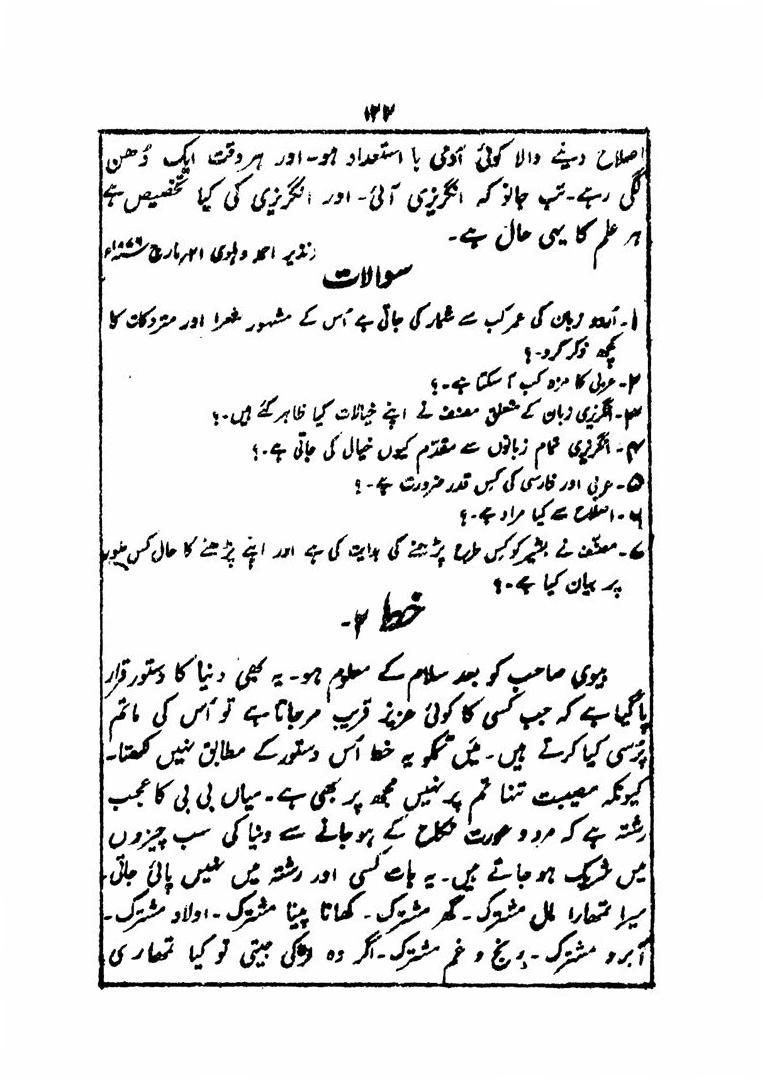 ۱۲۲
اصلاح دینے والا کوئی آدمی با استعداد ہو۔ اور ہر وقت ایک دُھن
لگی رہے۔ تب جانو کہ انگریزی آئی۔ اور انگریزی کی کیا تخصیص ہے
ہر علم کا یہی حال ہے۔
نذیر احمد دہلوی ۲۱؍مارچ ۱۸۷۶ء
سوالات
۱۔ اُردو زبان کی عمر کب سے شمار کی جاتی ہے اُس کے مشہور شعرا اور متروکات کا
کچھ ذکر کرو۔؟
۲۔ عربی کا مزہ کب آ سکتا ہے۔؟
۳۔ انگریزی زبان کے متعلق مصنف نے اپنے خیالات کیا ظاہر کئے ہیں۔؟
۴۔ انگریزی تمام زبانوں سے مقدّم کیوں خیال کی جاتی ہے۔؟
۵۔ عربی اور فارسی کی کس قدر ضرورت ہے۔؟
۶۔ اصلاح سے کیا مراد ہے۔؟
۷۔ مصنّف نے بشیر کو کس طرح پڑھنے کی ہدایت کی ہے اور اپنے پڑھنے کا حال کس طور
پر بیان کیا ہے۔؟
خط ۲۔
بیوی صاحب کو بعد سلام کے معلوم ہو۔ یہ بھی دنیا کا دستور قرار
پا گیا ہے کہ جب کسی کا کوئی عزیز قریب مر جاتا ہے تو اُس کی ماتم
پُرسی کیا کرتے ہیں۔ میں تمکو یہ خط اُس دستور کے مطابق نہیں لکھتا۔
کیونکہ مصیبت تنہا تم پر نہیں مجھ پر بھی ہے۔ میاں بی بی کا عجب
رشتہ ہے کہ مرد و عورت نکاح کے ہو جانے سے دنیا کی سب چیزوں
میں شریک ہو جاتے ہیں۔ یہ بات کسی اور رشتہ میں نہیں پائی جاتی
میرا تمھارا مال مشترک۔ گھر مشترک۔ کھانا پینا مشترک۔ اولاد مشترک۔
آبرو مشترک۔ رنج و غم مشترک۔ اگر وہ لڑکی جیتی تو کیا تمھاری